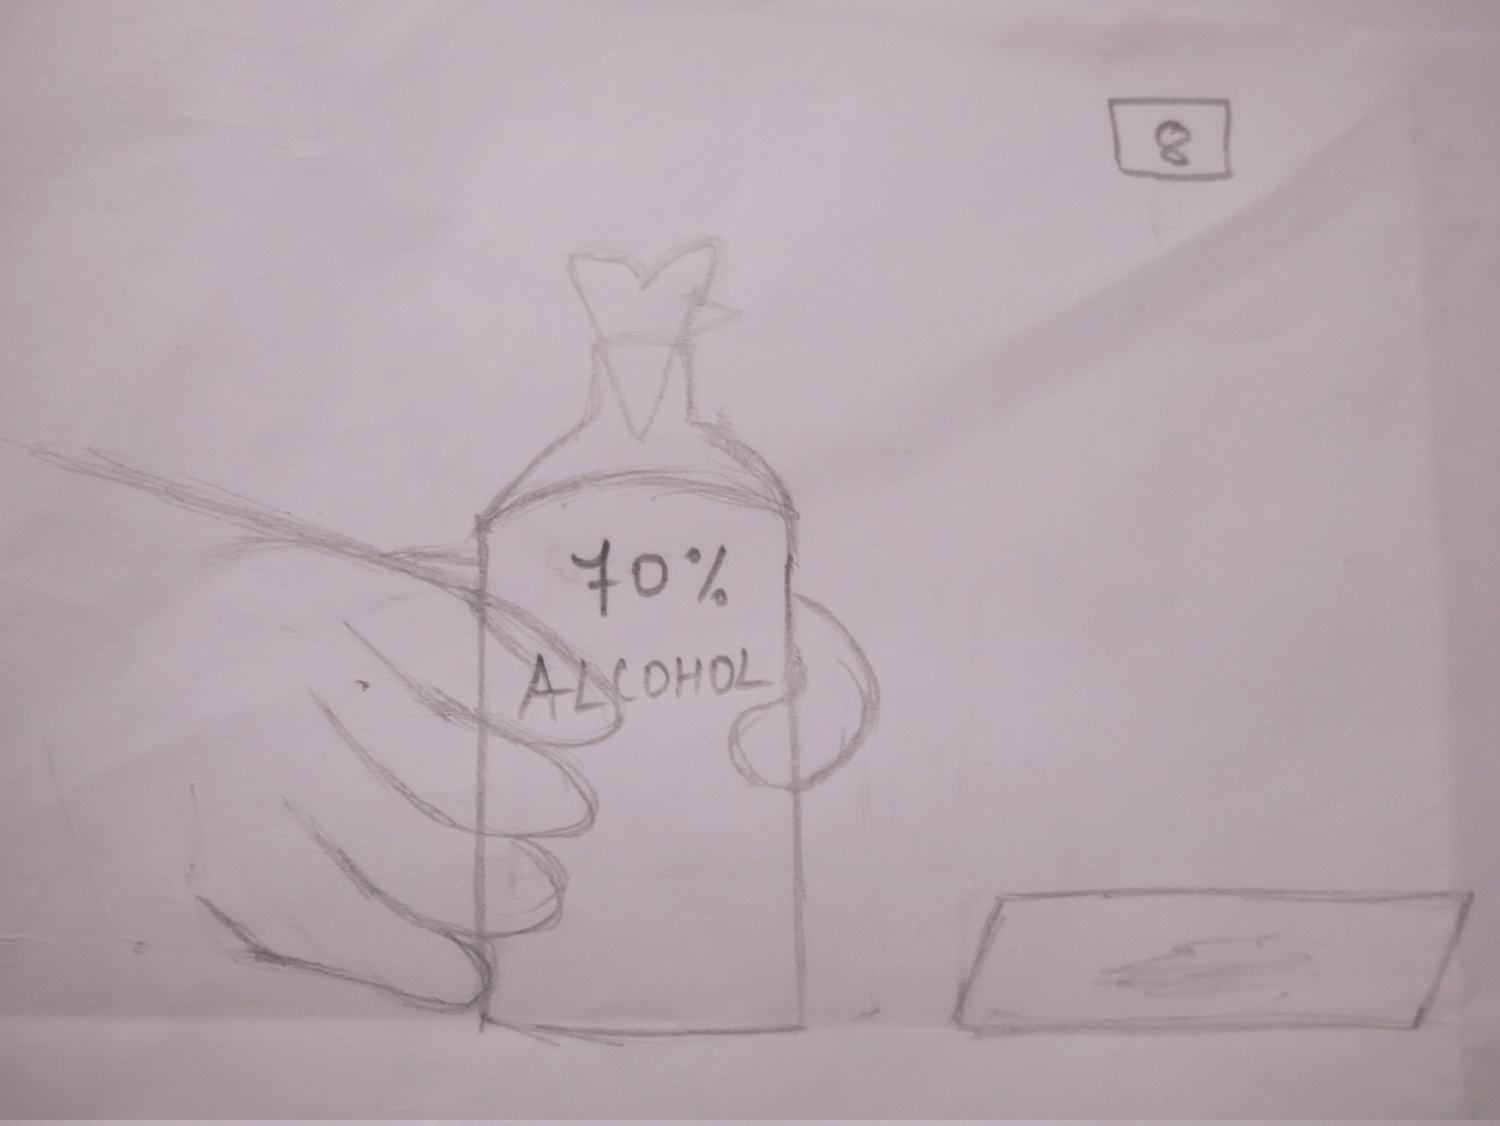 8
70%
ALCOHOL